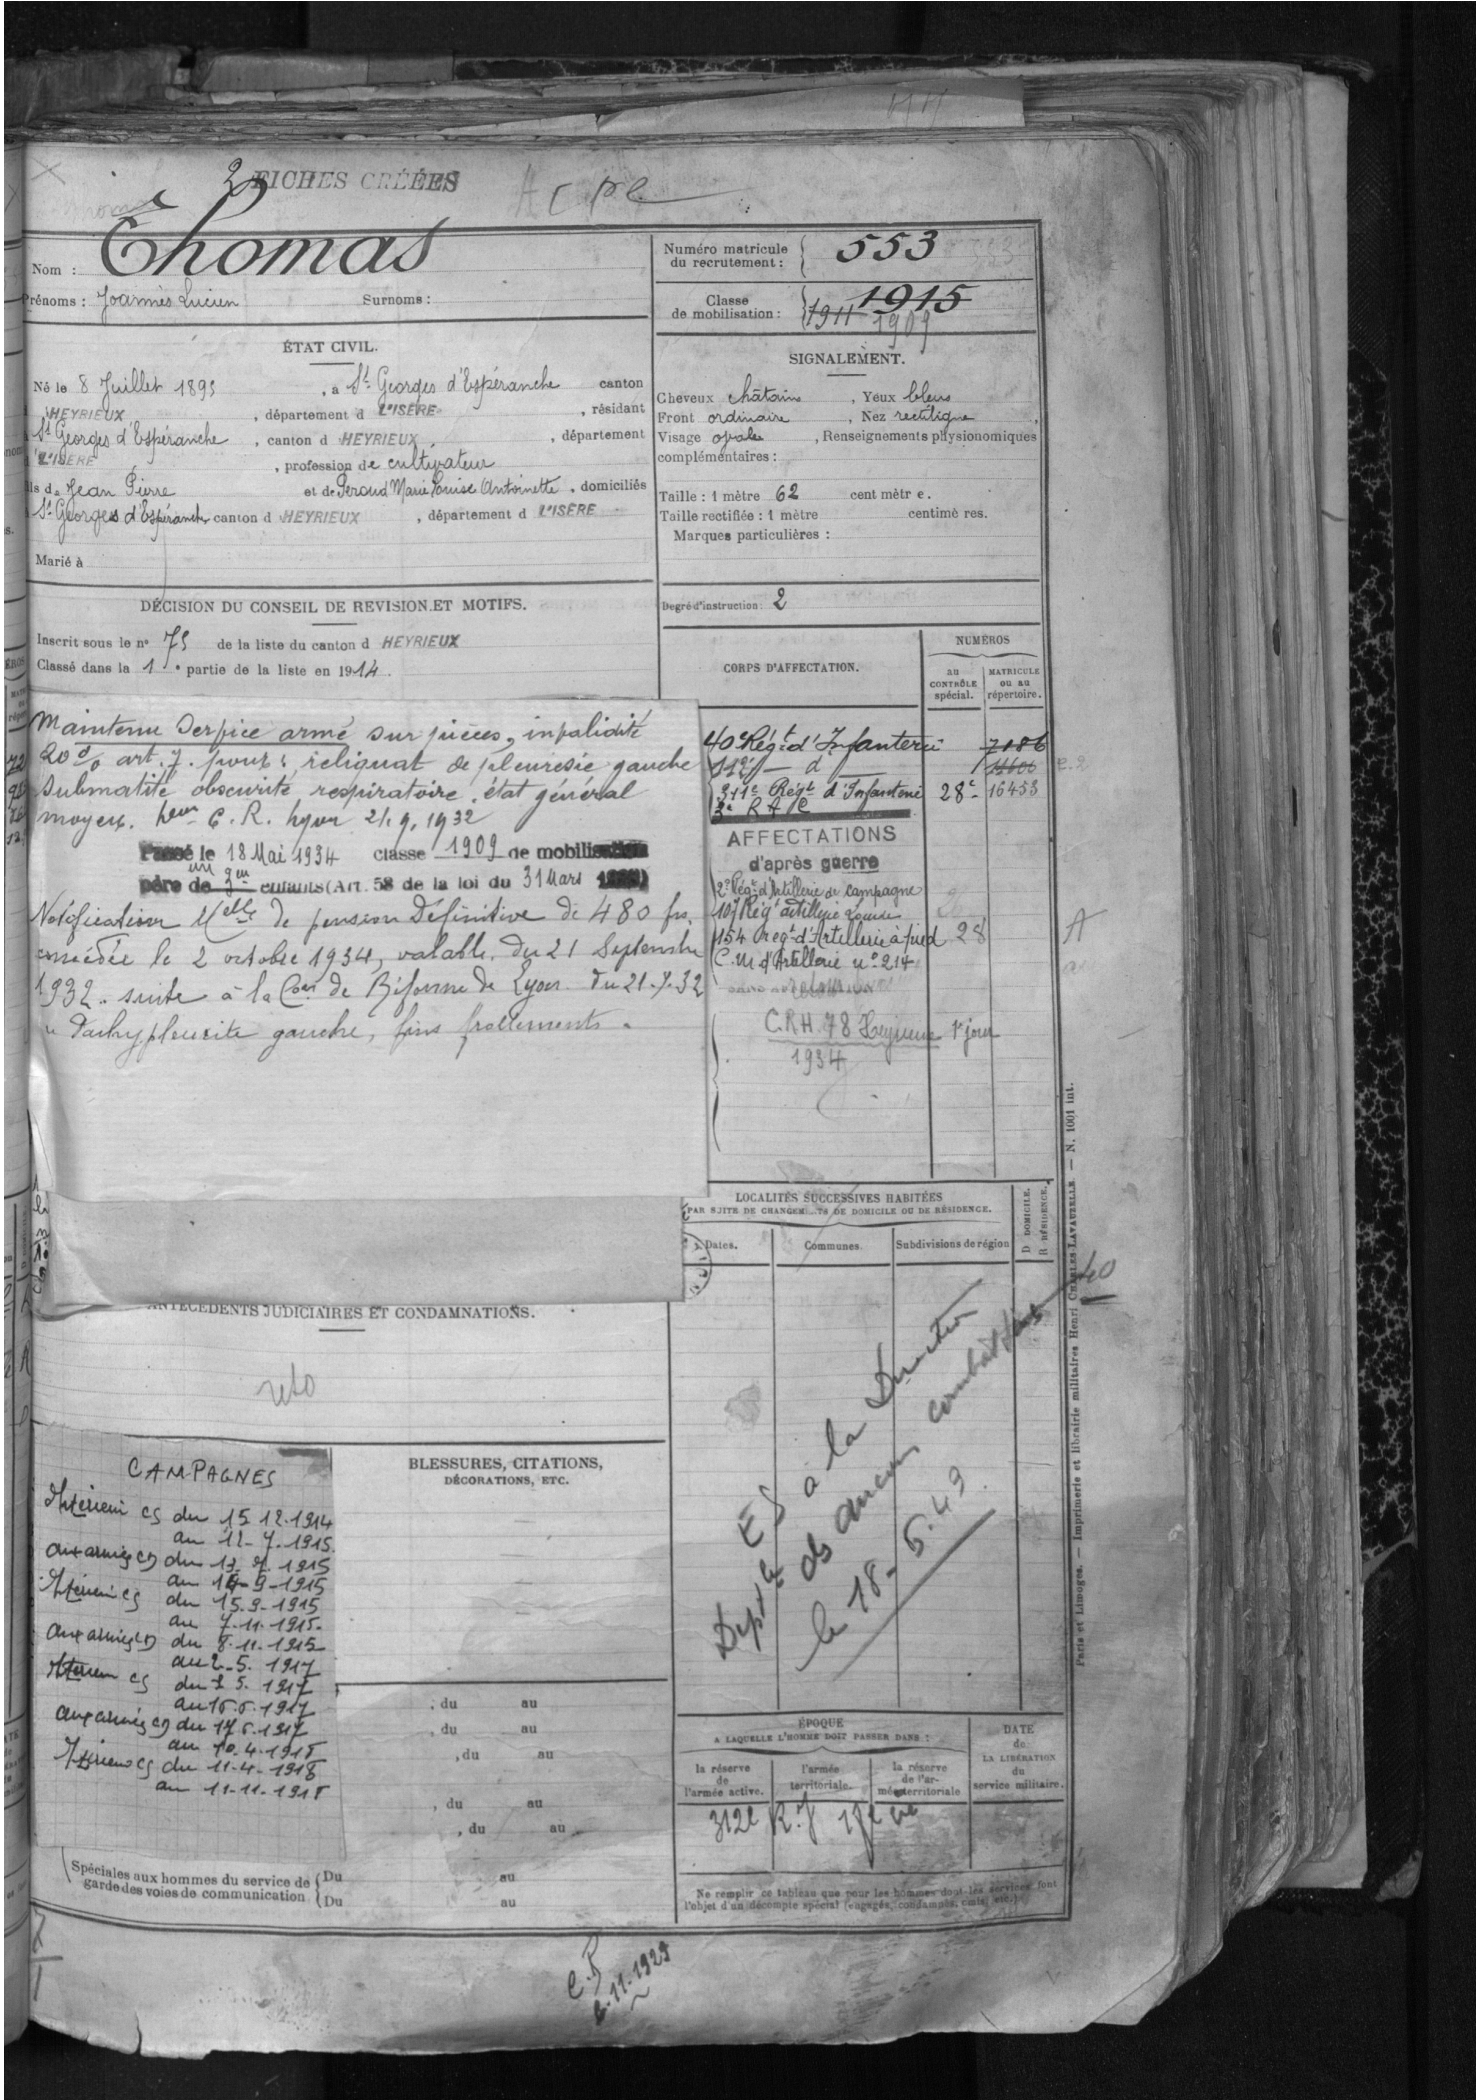 FICHES CRÉÉES
Nom : Thomas
Prénoms : Joannès Lucien Surnoms :
Numéro matricule du recrutement : 553
Classe de mobilisation : 1915
1911 1909
ÉTAT CIVIL.
Né le 8 Juillet 1895, à St Georges d'Espéranche canton
HEYRIEUX, département d L'ISÈRE, résidant
St Georges d'Espéranche, canton d HEYRIEUX, département
L'ISÈRE, profession de cultivateur
ls de Jean Pierre et de Peroud Marie Louise Antoinette, domiciliés
St Georges d'Espéranche canton d HEYRIEUX, département d L'ISÈRE
Marié à
SIGNALEMENT.
Cheveux châtains, Yeux bleus
Front ordinaire, Nez rectiligne,
Visage ovale, Renseignements physionomiques
complémentaires :
Taille : 1 mètre 62 cent mètr e.
Taille rectifiée : 1 mètre centimè res.
Marques particulières :
Degré d'instruction : 2
DÉCISION DU CONSEIL DE REVISION ET MOTIFS.
Inscrit sous le n° 75 de la liste du canton d HEYRIEUX
Classé dans la 1e partie de la liste en 1914.
Maintenu Service armé sur pièces, invalidité
20% art. 7. pour : reliquat de pleurésie gauche
Submatité obscurité respiratoire, état général
moyen. C. R. Lyon 21.9.1932
Passé le 18 Mai 1934 classe 1909 de mobilisation
père de un enfants (Art. 58 de la loi du 31 Mars
Notification de pension Définitive de 480 frs.
concédée le 2 octobre 1934, valable du 21 Septembre
1932. suite à la Con de Réforme de Lyon du 21.7.32
Pachypleurite gauche, fins frottements.
CORPS D'AFFECTATION.
NUMÉROS
au CONTRÔLE spécial.
MATRICULE ou au répertoire.
40e Régt d'Infanterie 7186
112e — d —
311e Régt d'Infanterie 28e 16453
3e R A C
AFFECTATIONS
d'après guerre
2e Régt d'Artillerie de campagne
107 Régt artillerie Lourde
154 regt d'Artillerie à pied 28
C.M d'Artillerie n° 214
C.R.H. 78 Heyrieux 1er jour
1934
LOCALITÉS SUCCESSIVES HABITÉES
PAR SUITE DE CHANGEMENTS DE DOMICILE OU DE RÉSIDENCE.
Dates. Communes. Subdivisions de région
D DOMICILE.
R RÉSIDENCE.
E S à la Direction
Deptle des anciens combattants
le 18-5.43
ANTÉCÉDENTS JUDICIAIRES ET CONDAMNATIONS.
CAMPAGNES
Intérieur CS du 15 12.1914
au 12-7-1915.
aux armées CD du 13.7.1915
au 14-9-1915
Intérieur CS du 15.9.1915
au 7-11-1915-
aux armées CD du 8-11-1915
au 2-5.1917
Intérieur CS du 3 5.1917
au 16.6.1917
aux armées CD du 17.6.1917
au 10.4.1918
Intérieur CS du 11-4-1918
au 11-11-1918
BLESSURES, CITATIONS,
DÉCORATIONS, ETC.
, du au
, du au
, du au
, du au
, du au
Spéciales aux hommes du service de garde des voies de communication
Du au
Du au
ÉPOQUE
A LAQUELLE L'HOMME DOIT PASSER DANS :
la réserve de l'armée active.
l'armée territoriale.
la réserve de l'armée territoriale
DATE de LA LIBÉRATION du service militaire.
Ne remplir ce tableau que pour les hommes dont les services font
l'objet d'un décompte spécial (engagés, condamnés, omis, etc.)
Paris et Limoges. — Imprimerie et librairie militaires Henri CHARLES-LAVAUZELLE. — N. 1001 int.